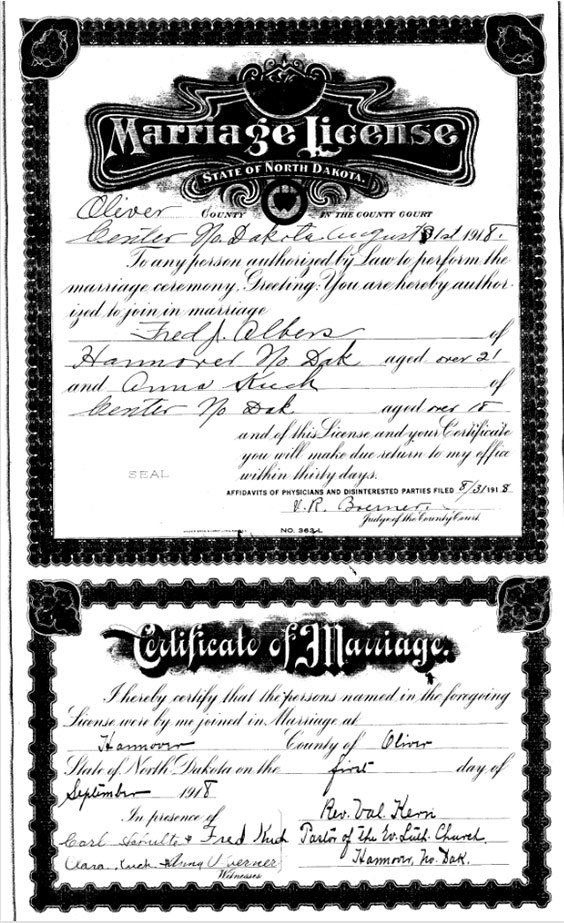 Marriage License
STATE OF NORTH DAKOTA.
Oliver COUNTY IN THE COUNTY COURT
Center No Dakota August 31st 1918.
To any person authorized by Law to perform the
marriage ceremony. Greeting: You are hereby author-
ized to join in marriage
Fred J. Albers of
Hannover No Dak aged over 21
and Anna Kuck of
Center No Dak. aged over 18
and of this License and your Certificate
you will make due return to my office
within thirty days.
SEAL
AFFIDAVITS OF PHYSICIANS AND DISINTERESTED PARTIES FILED 8/31 1918
H. R. Boerner.
Judge of the County Court.
NO. 363-L
Certificate of Marriage.
I hereby certify that the persons named in the foregoing
License were by me joined in Marriage at
Hannover County of Oliver
State of North Dakota on the first day of
September 1918
In presence of Rev. Val. Kern
Carl & Fred Kuck Pastor of The Ev. Luth. Church.
Clara Kuck Hannover, No. Dak.
Witnesses